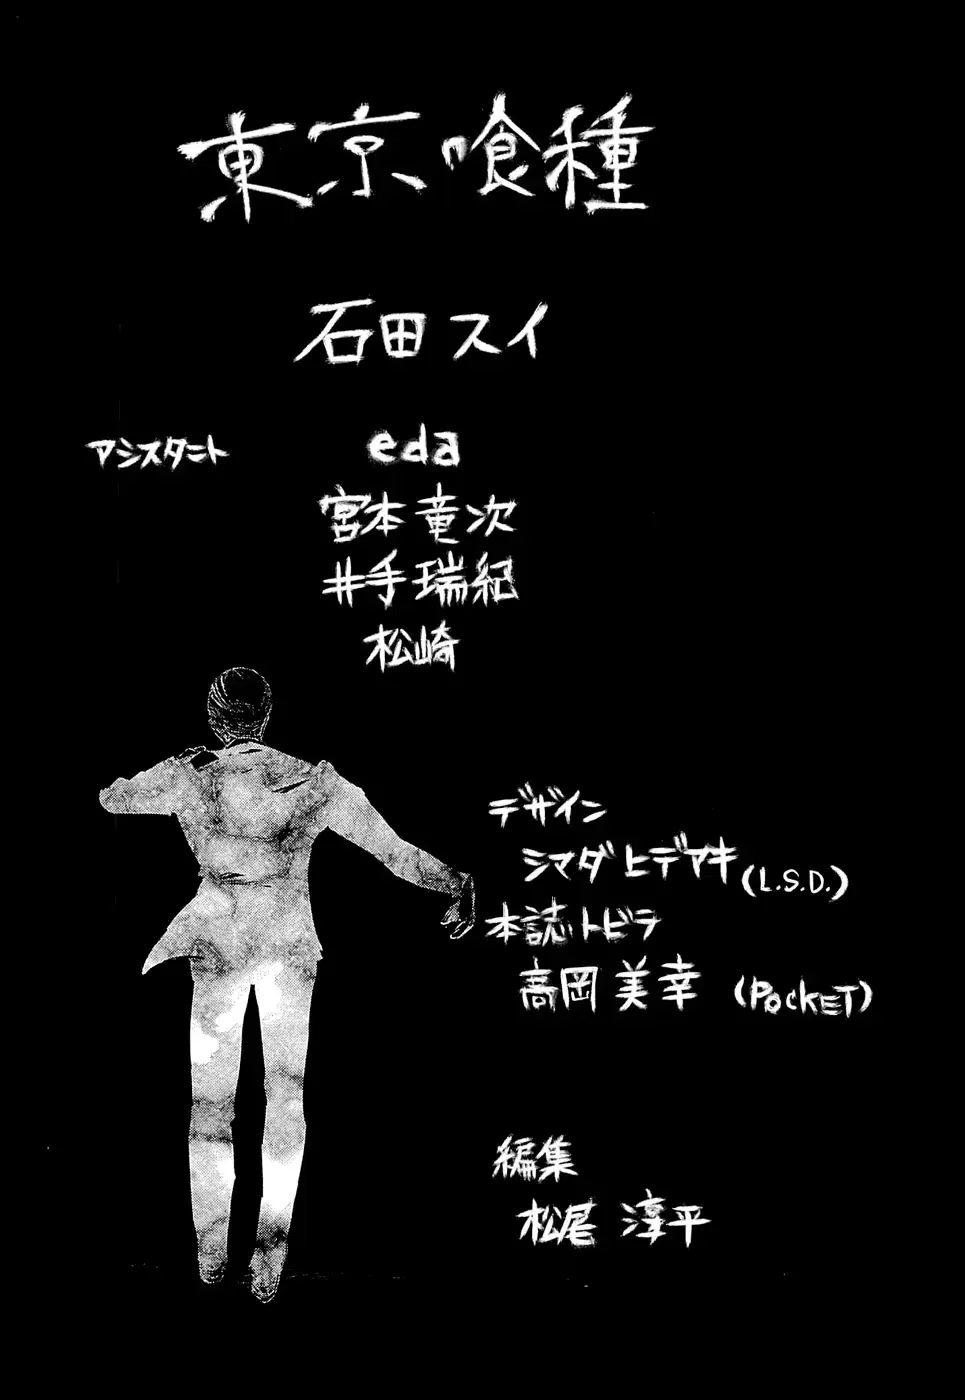 東京喰種
石田スイ
アシスタント
eda
宮本竜次
井手瑞紀
松崎
デザイン
シマダヒデアキ(L.S.D.)
本誌トビラ
高岡美幸 (POCKET)
編集
松尾 淳平